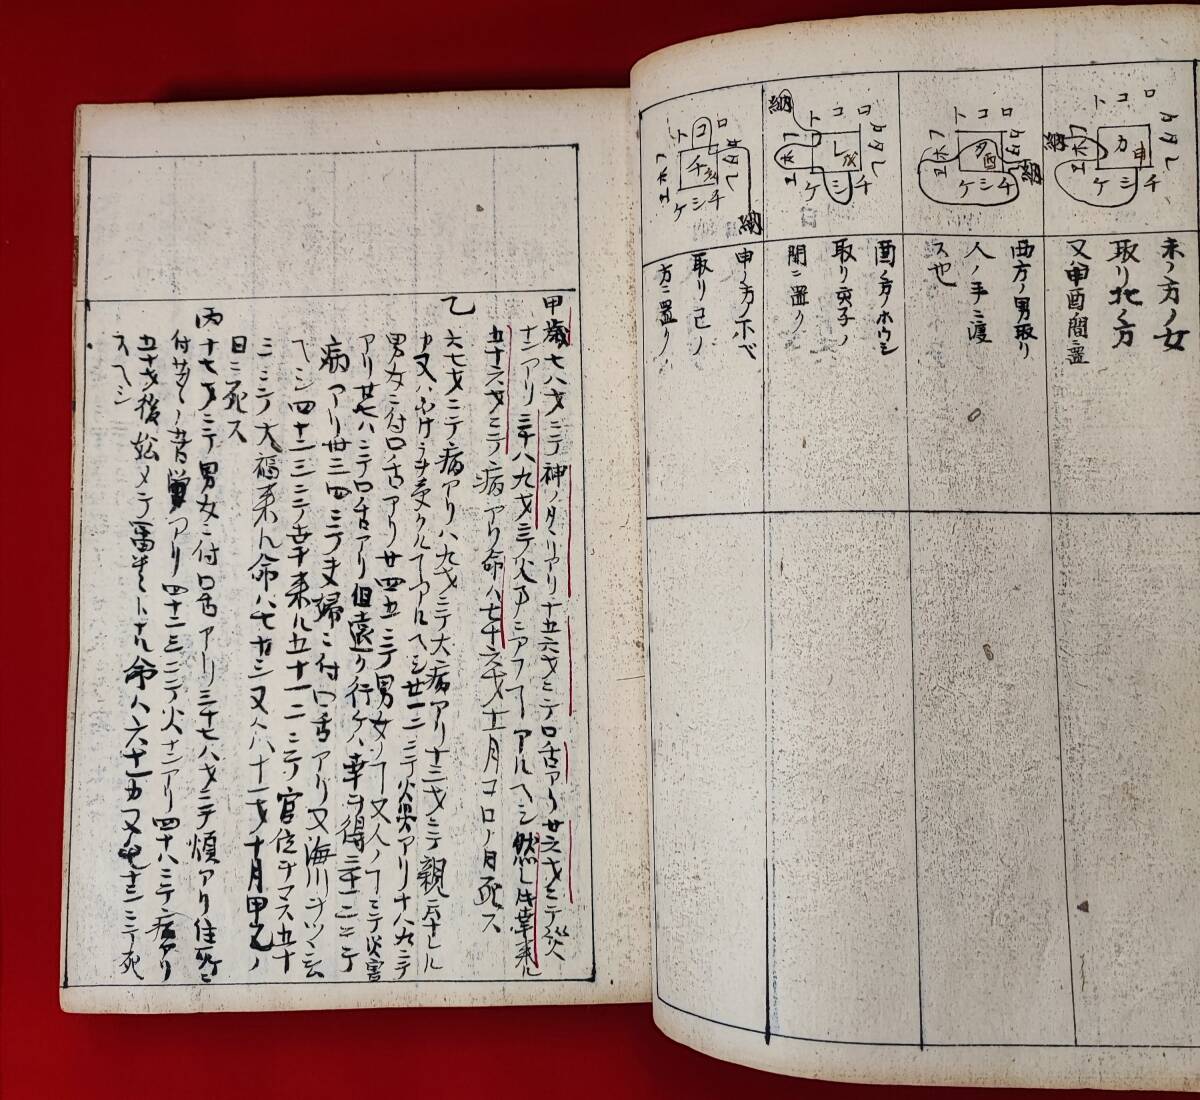 トコロ
タタレ
チシケ
エホフ
納
カ
申
未ノ方ノ女
取リ北ノ方
又申酉ノ間ニ置
トコロ
タタレ
チシケ
エホフ
納
タ
酉
西方ノ男取リ
人ノ手ニ渡
ス也
トコロ
チシケ
エホフ
納
レ
戌
酉ノ方ノホウシ
取リ亥子ノ
間ニ置クノ
トコロ
タタレ
チシケ
エホフ
納
チ
申ノ方ノホベ
取リ己ノ
方ニ置クノ
甲歳七八才ニテ神ノタヽリアリ十五六才ニテ口舌アリ廿六才ニテ災
ナンアリ三十八九才ニテ火ナンニアフ丁アルヘシ然レ𪜈幸来ル
五十六才ニテ病アリ命ハ七十六才十一月コロノ月死ス
乙
六七才ニテ病アリ八九才ニテ大病アリ十三才ニテ親ニ
又ハ ヲ受クル丁アルヘシ廿一二ニテ火災アリ十八九ニテ
男女ニ付口舌アリ廿四五ニテ男女ノ丁又人ノ丁ニテ災害
アリ廿七八ニテ口舌アリ但遠ク行ケハ幸ヲ得三十一二ニテ
病アリ卅三四ニテ夫婦ニ付口舌アリ又海川ヲツヽシム
ヘシ四十二三ニテ幸来ル五十一二ニテ官位ヲマス五十
三ニテ大福来ル命ハ七十三又ハ八十一才十月甲乙ノ
日ニ死ス
丙十七才ニテ男女ニ付口舌アリ三十七八才ニテ煩アリ住所ニ
付 アリ四十二三ニテ火ナンアリ四十八ニテ病アリ
五十才後始メテ ル命ハ六十一カ又七十三ニテ死
スヘシ